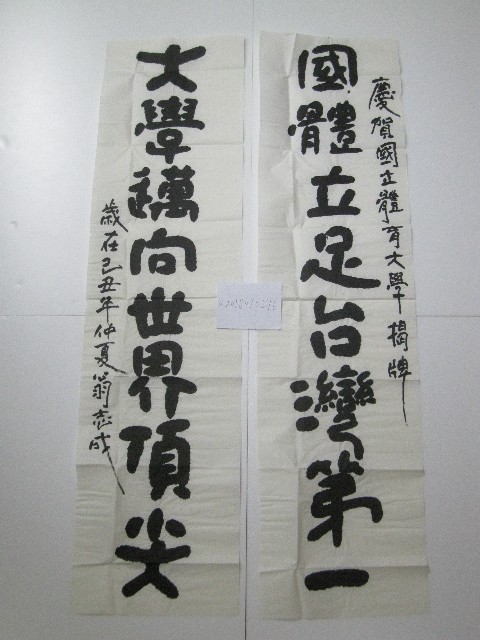 慶賀國立體育大學揭牌
國體立足台灣第一
大學邁向世界頂尖
歲在己丑年仲夏翁志成